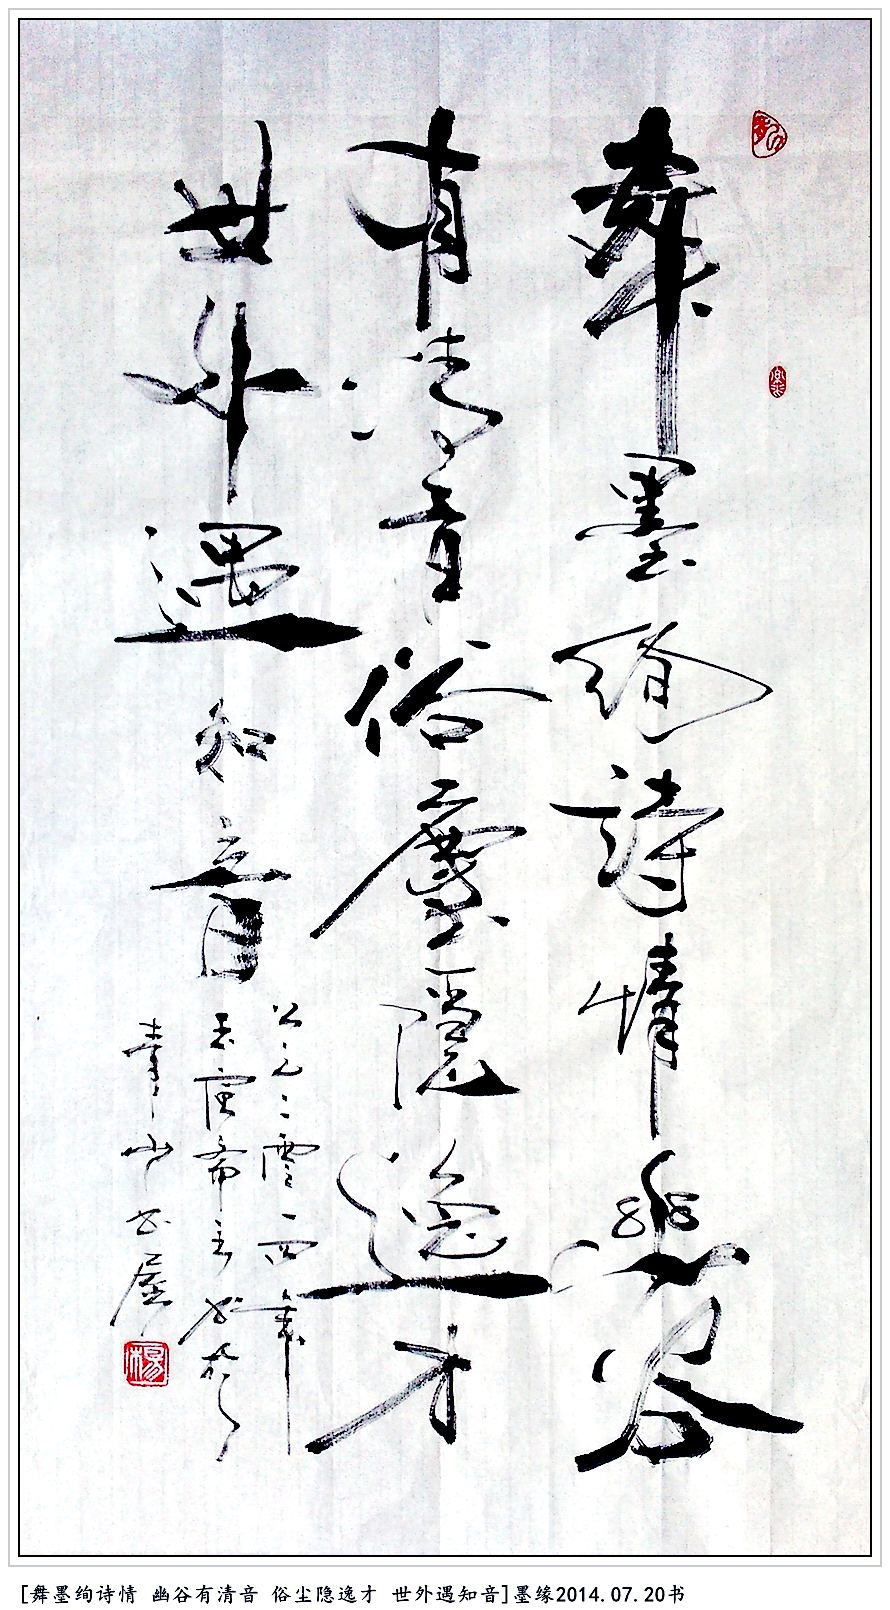 舞墨絢詩情幽谷
有清音俗塵隱逸才
世外遇知音
公元二零一四年
唐斋主书於
青山书屋
楊
[舞墨绚诗情 幽谷有清音 俗尘隐逸才 世外遇知音]墨缘2014.07.20书